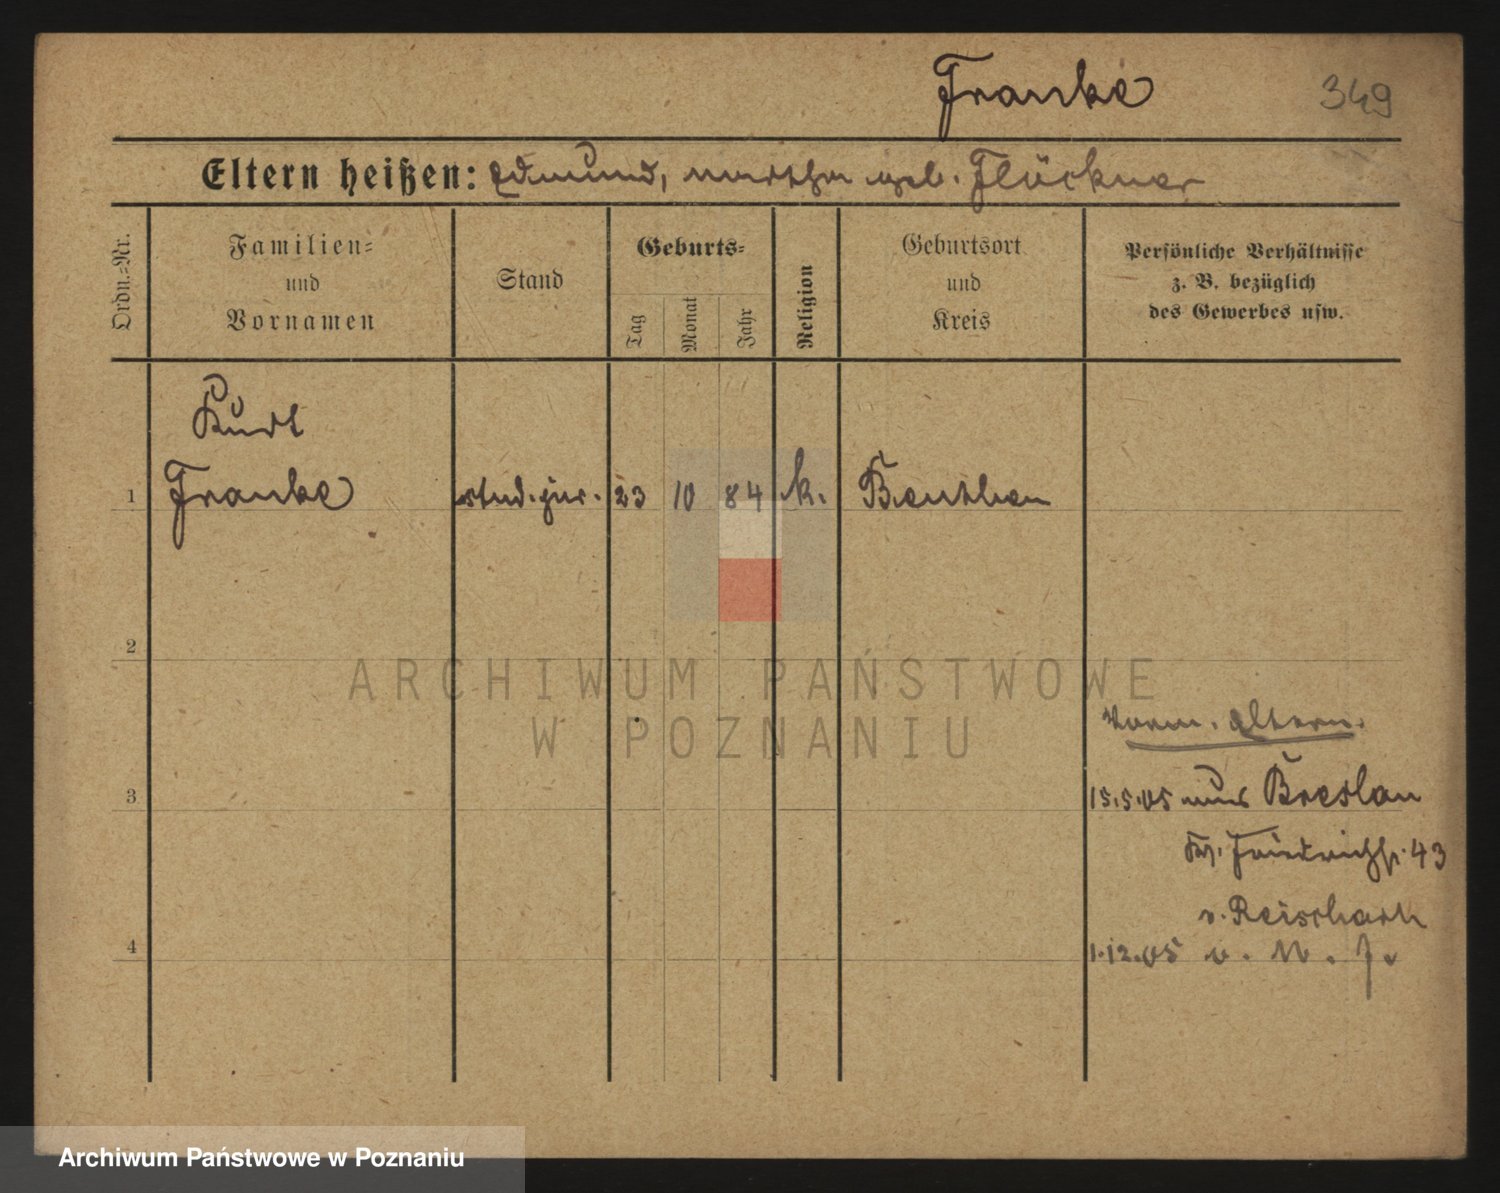 Franke 349
Eltern heißen: Edmund, Martha geb. Flöckner
Ordn.-Nr.
Familien- und Vornamen
Stand
Geburts-
Tag
Monat
Jahr
Religion
Geburtsort und Kreis
Persönliche Verhältnisse z. B. bezüglich des Gewerbes usw.
Kurt
1 Franke stud. jur. 23 10 84 k. Beuthen
2
ARCHIWUM PAŃSTWOWE
W POZNANIU
Eltern.
3 15.5.05 aus Breslau
Friedrichstr. 43
v.
4 1.12.05 v. N. J.
Archiwum Państwowe w Poznaniu